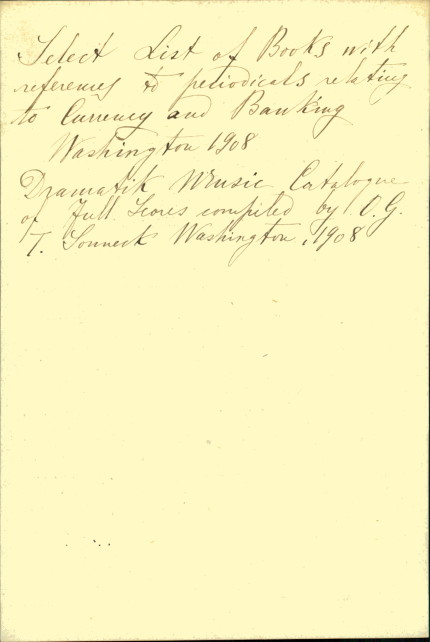 Select List of Books with
references to periodicals relating
to Currency and Banking
Washington 1908
Dramatik Music Catalogue
of Full Scores compiled by O. G.
T. Sonneck Washington, 1908